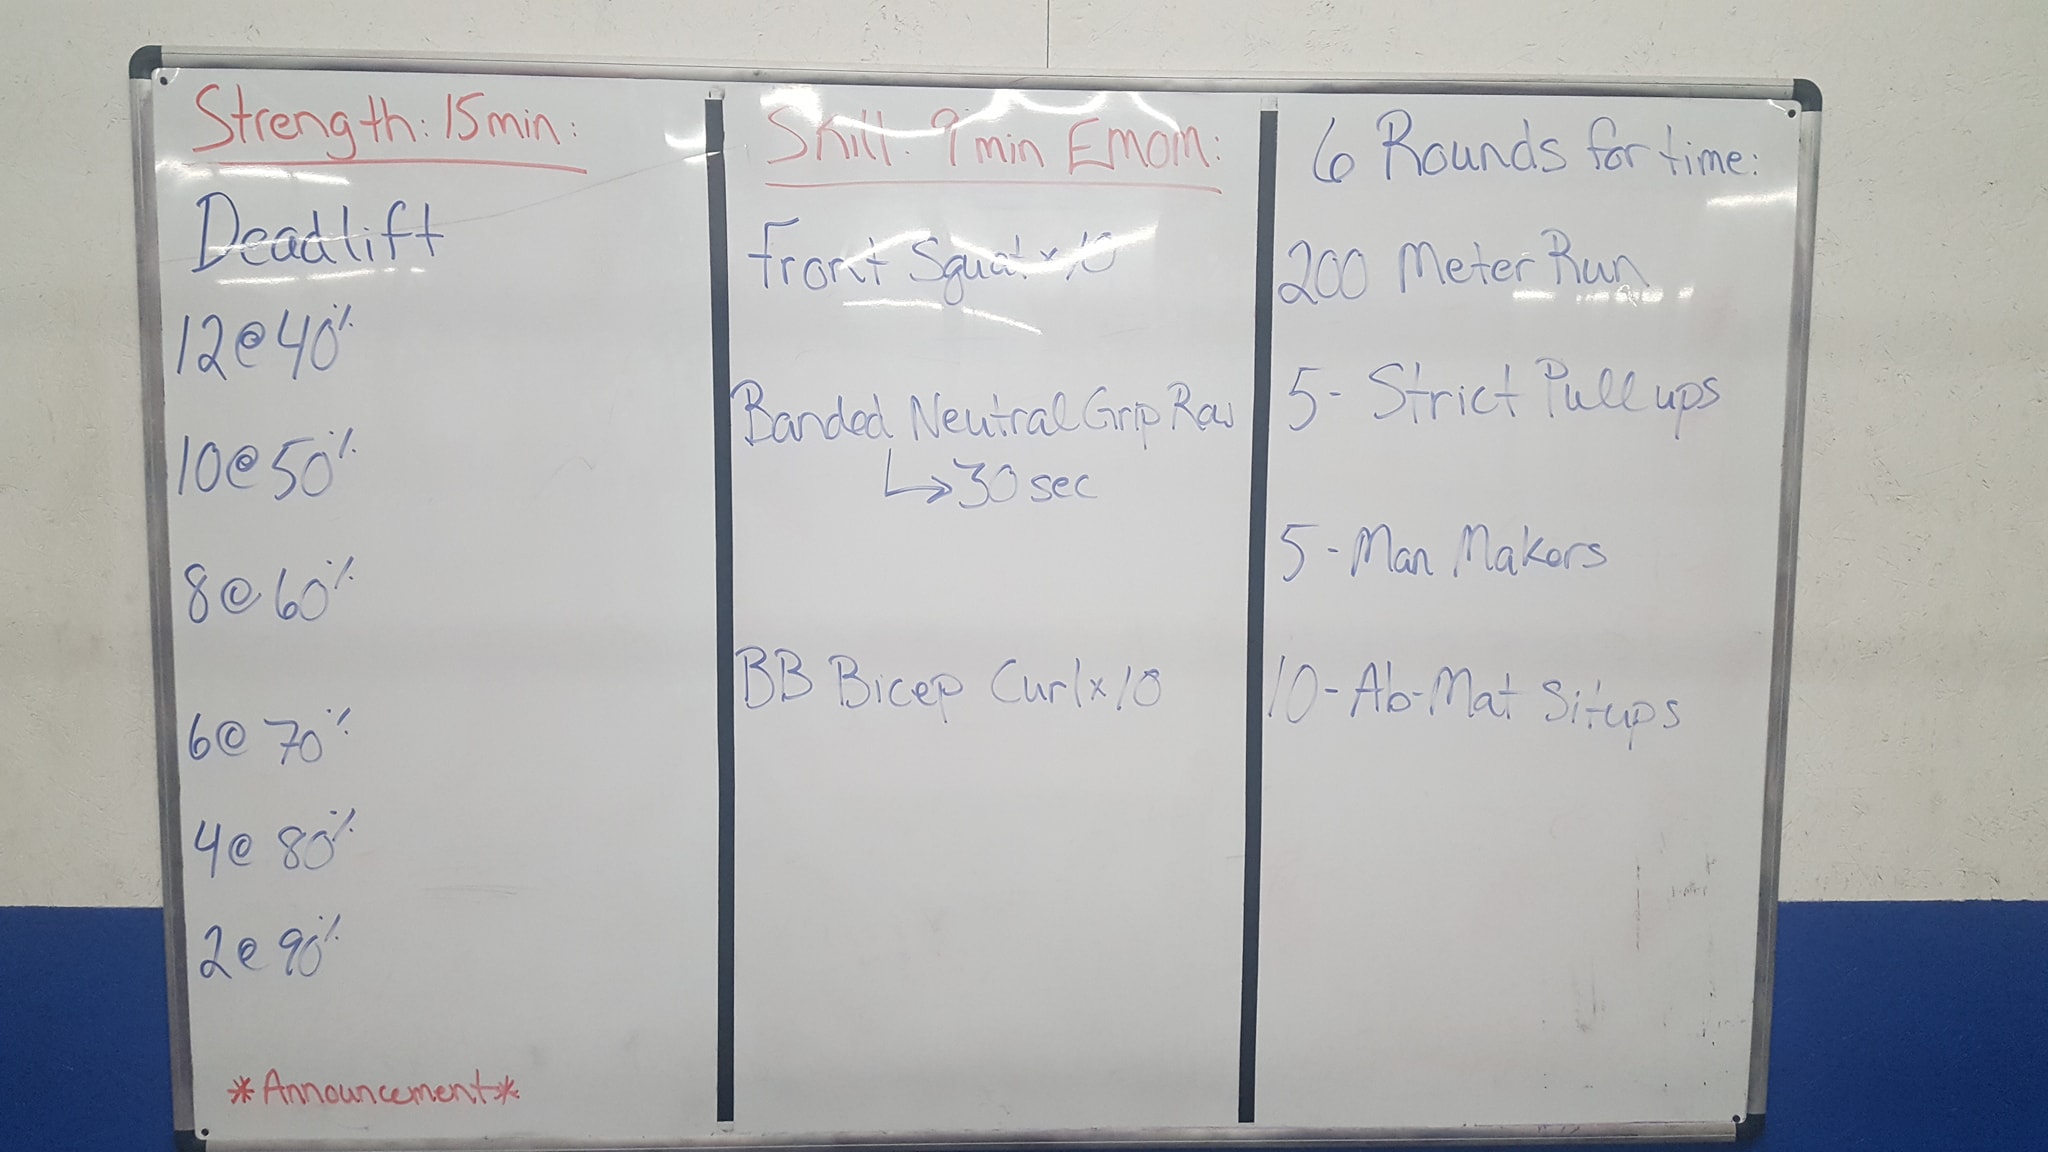 Strength: 15min:
Deadlift
12@40%
10@50%
8@60%
6@70%
4@80%
2@90%
*Announcement*
Skill: 9 min Emom:
Front Squat x 10
Banded Neutral Grip Row
↳30 sec
BB Bicep Curl x 10
6 Rounds for time:
200 Meter Run
5- Strict Pull ups
5- Man Makers
10-Ab-Mat Situps